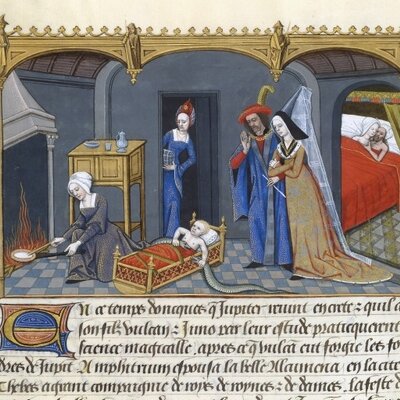 En ce temps doncques q̄ Jupiter vivint en crete ⁊ quil a
son filz vulcan ⁊ Juno par leur estude pratiquerent
science magicalle, apres ce q̄ vulcā eut forgie les fo
dres de Jupit̄ Amphitrion espousa la belle Alcumena en la cite
Thebes a grant compaignie de roys de roynes ⁊ de dames, la feste d